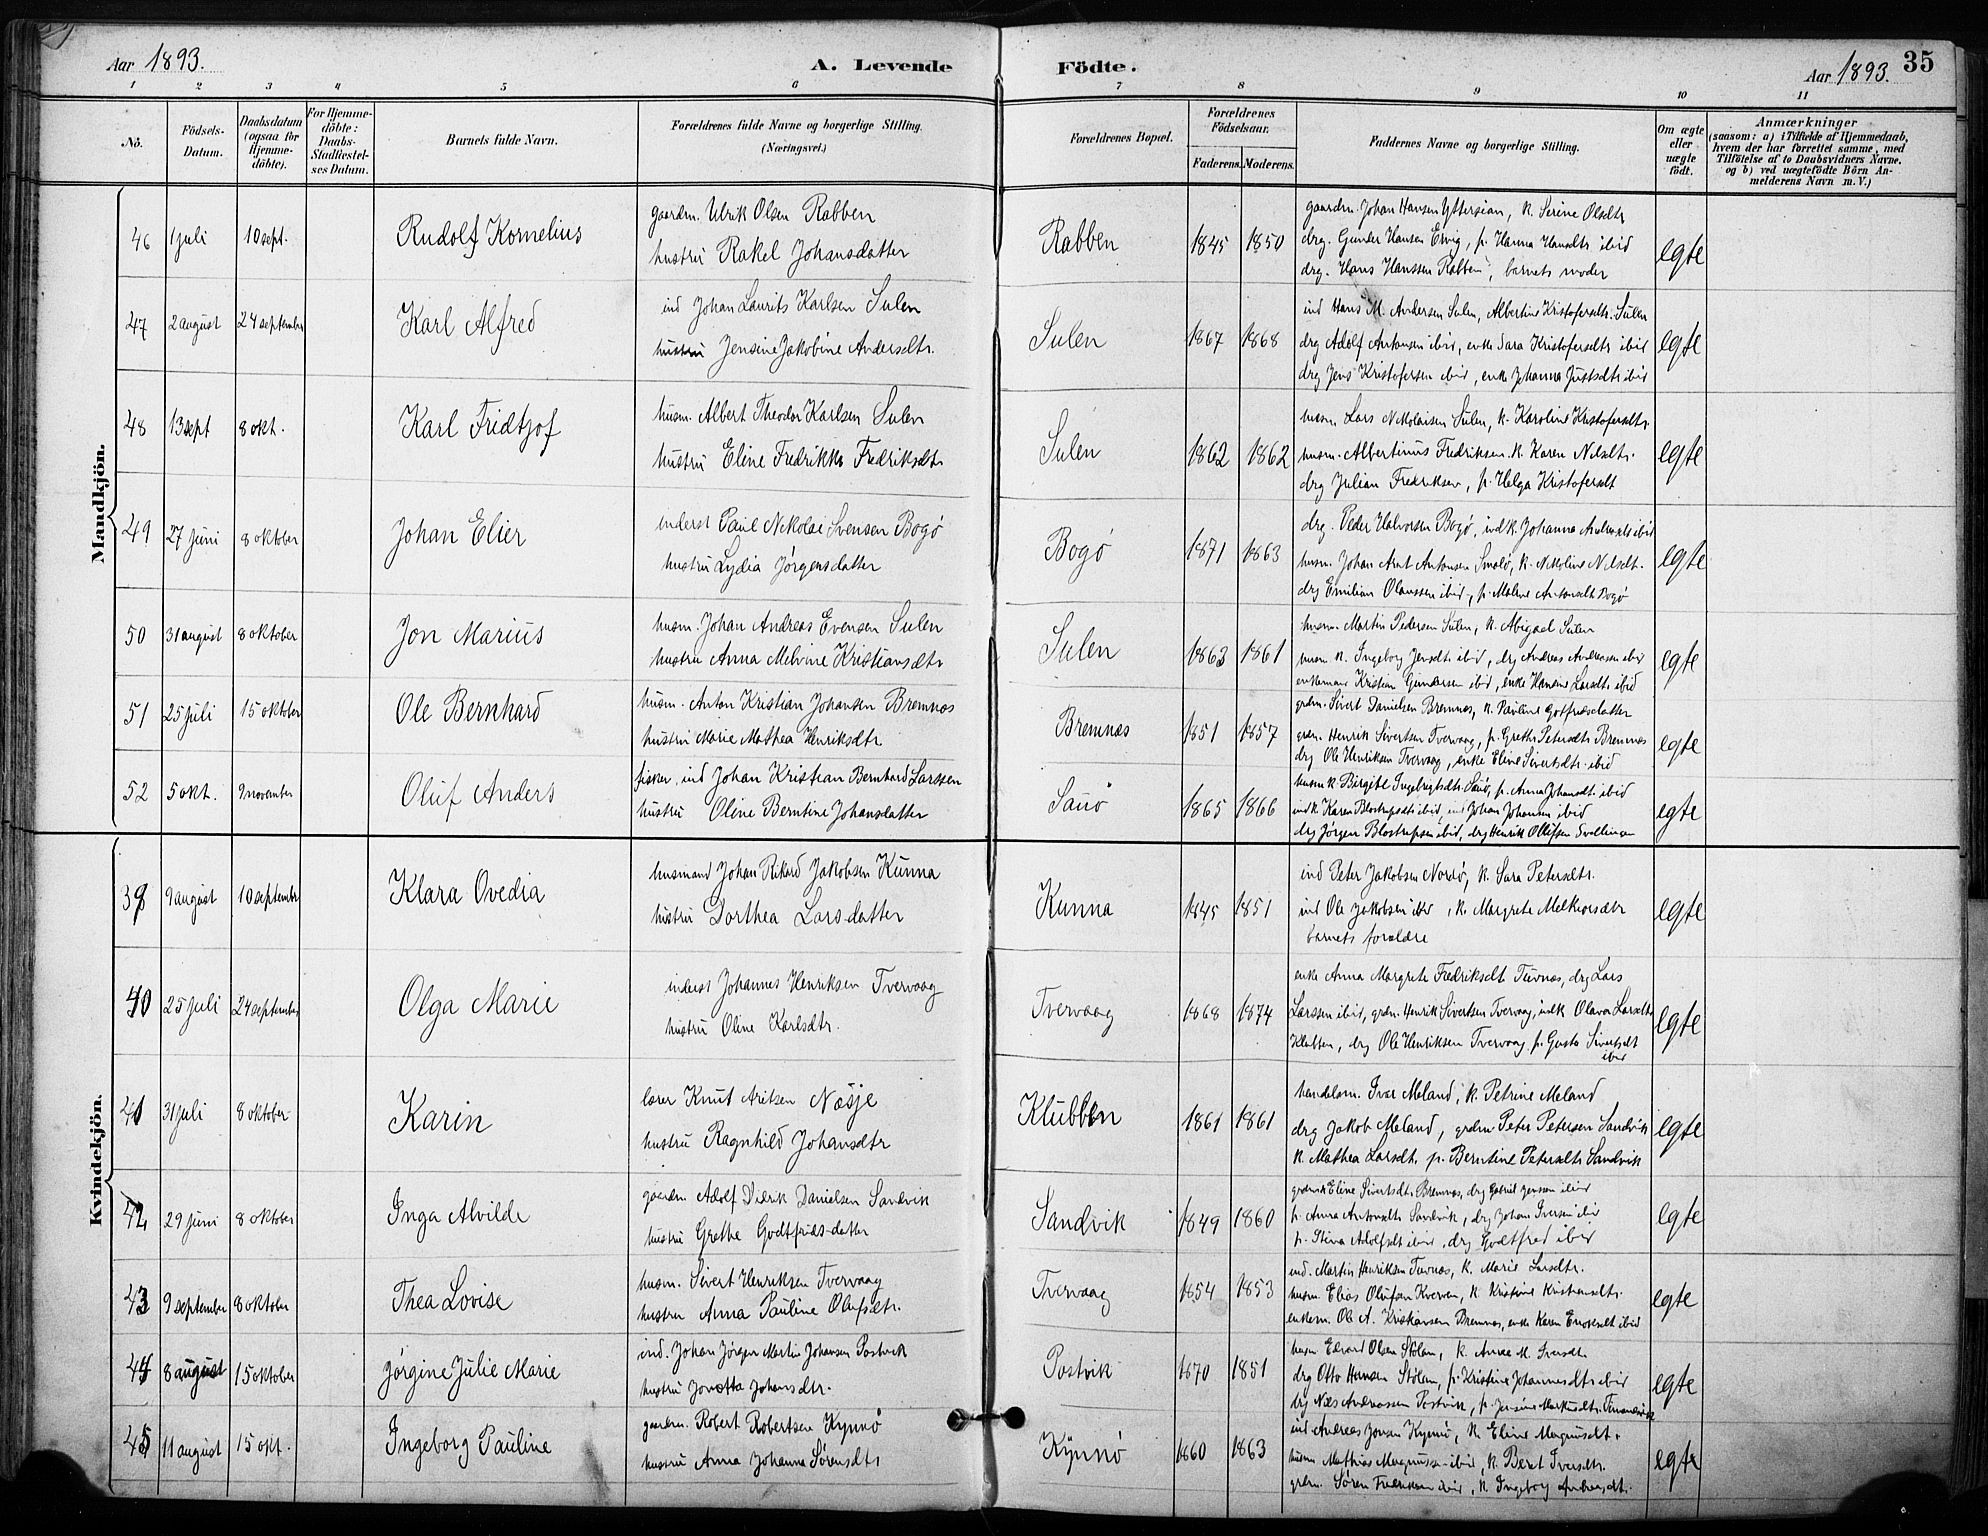 Aar 1893.
A. Levende Födte.
Aar 1893. 35
1 2 3 4 5 6 7 8 9 10 11
No.
Födsels-Datum.
Daabsdatum (ogsaa for Hjemme-döbte).
For Hjemme-döbte: Daabs-Stadfæstel-ses Datum.
Barnets fulde Navn.
Forældrenes fulde Navne og borgerlige Stilling. (Næringsvei.)
Forældrenes Bopæl.
Forældrenes Födselsaar.
Faderens. Moderens.
Faddernes Navne og borgerlige Stilling.
Om ægte eller uægte födt.
Anmærkninger
(saasom: a) i Tilfælde af Hjemmedaab,
hvem der har forrettet samme, med
Tilföielse af to Daabsvidners Navne.
og b) ved uægtefödte Börn An-
melderens Navn m. V.)
Mandkjön.
46 1 juli 10 sept. Rudolf Kornelius
gaardm. Ulrik Olsen Rabben
hustru Rakel Johansdatter
Rabben 1845 1850
gaardm. Johan Hansen Yttersian, k. Serine Olsdtr
drg. Gunder Hansen Ervig, p. Hanna Hansdtr ibid
drg. Hans Hanssen Rabben, barnets moder
egte
47 2 august 24 september Karl Alfred
ind Johan Laurits Karlsen Sulen
hustru Jensine Jakobine Andersdtr.
Sulen 1867 1868
ind Hans M. Andersen Sulen, Albertine Kristofersdtr. Sulen
drg Adolf Antonsen ibid, enke Sara Kristofersdtr ibid
drg Jens Kristofersen ibid, enke Johanna Justsdtr ibid
egte
48 13 sept 8 okt. Karl Fridtjof
husm. Albert Theodor Karlsen Sulen
hustru Eline Fredrikke Fredriksdtr
Sulen 1862 1862
husm. Lars Nikolaisen Sulen, k. Karoline Kristofersdtr.
husm. Albertinus Fredriksen k. Karen Nilsdtr.
drg Julian Fredriksen, p. Helga Kristofersdt
egte
49 27 juni 8 oktober Johan Elier
inderst Paul Nikolai Svensen Bogø
hustru Lydia Jørgensdatter
Bogø 1871 1863
drg. Peder Halvorsen Bogø, ind k. Johanna ibid
husm. Johan Arnt Antonsen Smolø, k. Nikoline Nilsdt.
drg Emilian Olaussen ibid, p. Malene Antonsdt Bogø
egte
50 31 august 8 oktober Jon Marius
husm. Johan Andreas Evensen Sulen
hustru Anna Melvine Kristiansdtr
Sulen 1863 1861
husm. Martin Pedersen Sulen, k. Abigael Sulen
husm k. Ingeborg Jensdtr ibid, drg Andreas Andreasen ibid
enkemand Kristian Gundersen ibid, enke Hansine Larsdtr ibid
egte
51 25 juli 15 oktober Ole Bernhard
husm. Anton Kristian Johansen Bremnes
hustru Marie Mathea Henriksdtr
Bremnes 1851 1857
grdm. Sivert Danielsen Bremnes, k. Pauline Gotfriedsdatter
grdm. Henrik Sivertsen Tvervaag, p. Grethe Petersdtr Bremnes
drg Ole Henriksen Tvervaag, enke Eline Sivertsdtr. ibid
egte
52 5 okt. 9 november Oluf Anders
fisker, ind Johan Kristian Bernhard Larssen
hustru Oline Berntine Johansdatter
Sauø 1865 1866
husm k. Birgitte Ingebrigtsdtr Sauø, p. Anna Johansdt ibid
ind k. Karen ibid, ind Johan Johansen ibid
drg Jørgen ibid, drg Henrik
egte
Kvindekjön.
39 9 august 10 september Klara Ovedia
husmand Johan Rikard Jakobsen Kunna
hustru Dorthea Larsdatter
Kunna 1845 1851
ind Peter Jakobsen Nordø, k. Sara Petersdtr.
ind Ole Jakobsen ibid, k. Margrete Melkiorsdtr
barnets forældre
egte
40 25 juli 24 september Olga Marie
inderst Johannes Henriksen Tvervaag
hustru Oline Karlsdtr.
Tvervaag 1868 1874
enke Anna Margrete Fredriksdt Tuvnes, drg Lars
Larssen ibid, grdm. Henrik Sivertsen Tvervaag, ind k Olava Larsdtr
Klubben, drg Ole Henriksen Tvervaag, p. Gusta Sivertsdt
ibid
egte
41 31 juli 8 oktober Karin
lærer Knut Næsje
hustru Ragnhild Johansdtr
Klubben 1861 1861
handelsm. Iver Meland, k. Petrine Meland
drg Jakob Meland, grdm Peter Petersen Sandvik
k. Mathea Larsdt, p. Berntine Petersdtr Sandvik
egte
42 29 juni 8 oktober Inga Alvilde
gaardm Adolf Didrik Danielsen Sandvik
hustru Grethe Godtfriedsdatter
Sandvik 1849 1860
grdm k Eline Sivertsdtr Bremnes, drg Gabriel Jensen ibid
p. Anna Antonsdtr Sandvik, drg Johan Iversen ibid
p. Stina Adolfsdt ibid, drg Godtfred ibid
egte
43 9 september 8 oktober Thea Lovise
husm. Sivert Henriksen Tvervaag
hustru Anna Pauline Olufsdtr.
Tvervaag 1854 1853
ind. Martin Henriksen Tuvnes, k. Marie Larsdtr.
husm. Elias Olufsen Kverven, k. Kristine Kristensdtr.
enkem. Ole A. Kristiansen Bremnes, enke Karen ibid
egte
44 8 august 15 oktober Jørgine Julie Marie
ind. Johan Jørgen Martin Johansen Postvik
hustru Jonetta Johansdtr.
Postvik 1870 1851
husm Edvard Olsen Stølan, k. Anne M. Iversdt.
drg Otto Hansen Stølan, p. Kristine Johannesdtr ibid
drg Andreassen Postvik, p. Jensine Markusdtr.
egte
45 11 august 15 okt. Ingeborg Pauline
gaardm. Robert Robertsen Kynnø
hustru Anna Johanna Sørensdtr
Kynnø 1860 1863
ind Andreas Jonsen Kynnø, k. Eline Magnusdt.
husm Mathias Magnussen ibid, k. Beret Iversdtr.
grdm. Søren Fredriksen ibid, k. Ingeborg Andersdt.
egte